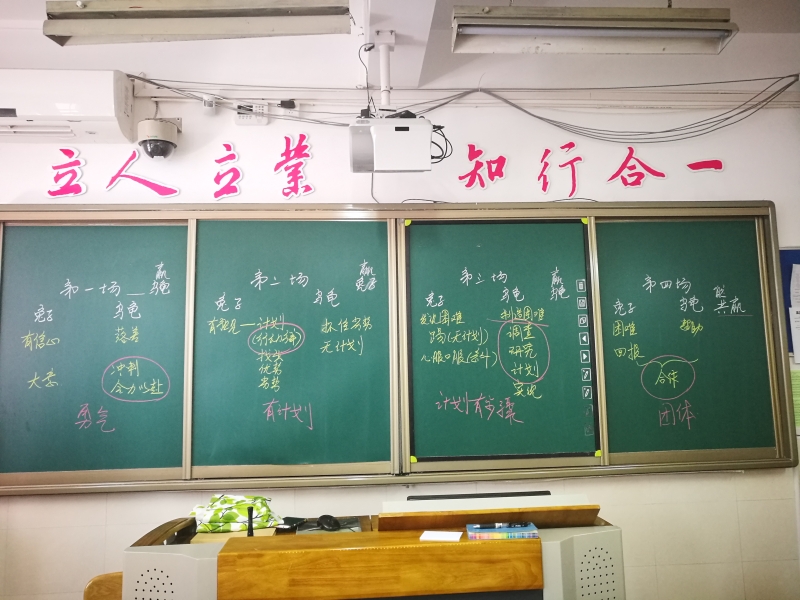 立人立業 知行合一
第一场 赢
乌龟
兔子 乌龟
有信心 落差
大意 冲刺
全力以赴
勇气
第二场 赢
兔子
兔子 乌龟
有远见 计划
无计划
找出
优势
劣势
有计划
第三场 赢
乌龟
兔子 乌龟
发现困难 制造困难
(无计划) 调查
研究
计划
实现
计划有步骤
第四场
共赢
兔子 乌龟
困难 帮助
回报
合作
团体